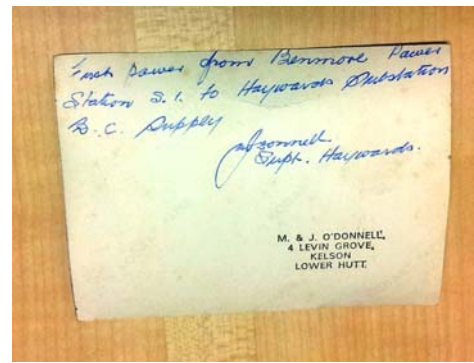 First Power from Benmore Power
Station S.I. to Haywards Substation
D.C. Supply
M O'Donnell
Supt. Haywards.
M. & J. O'DONNELL,
4 LEVIN GROVE,
KELSON
LOWER HUTT.